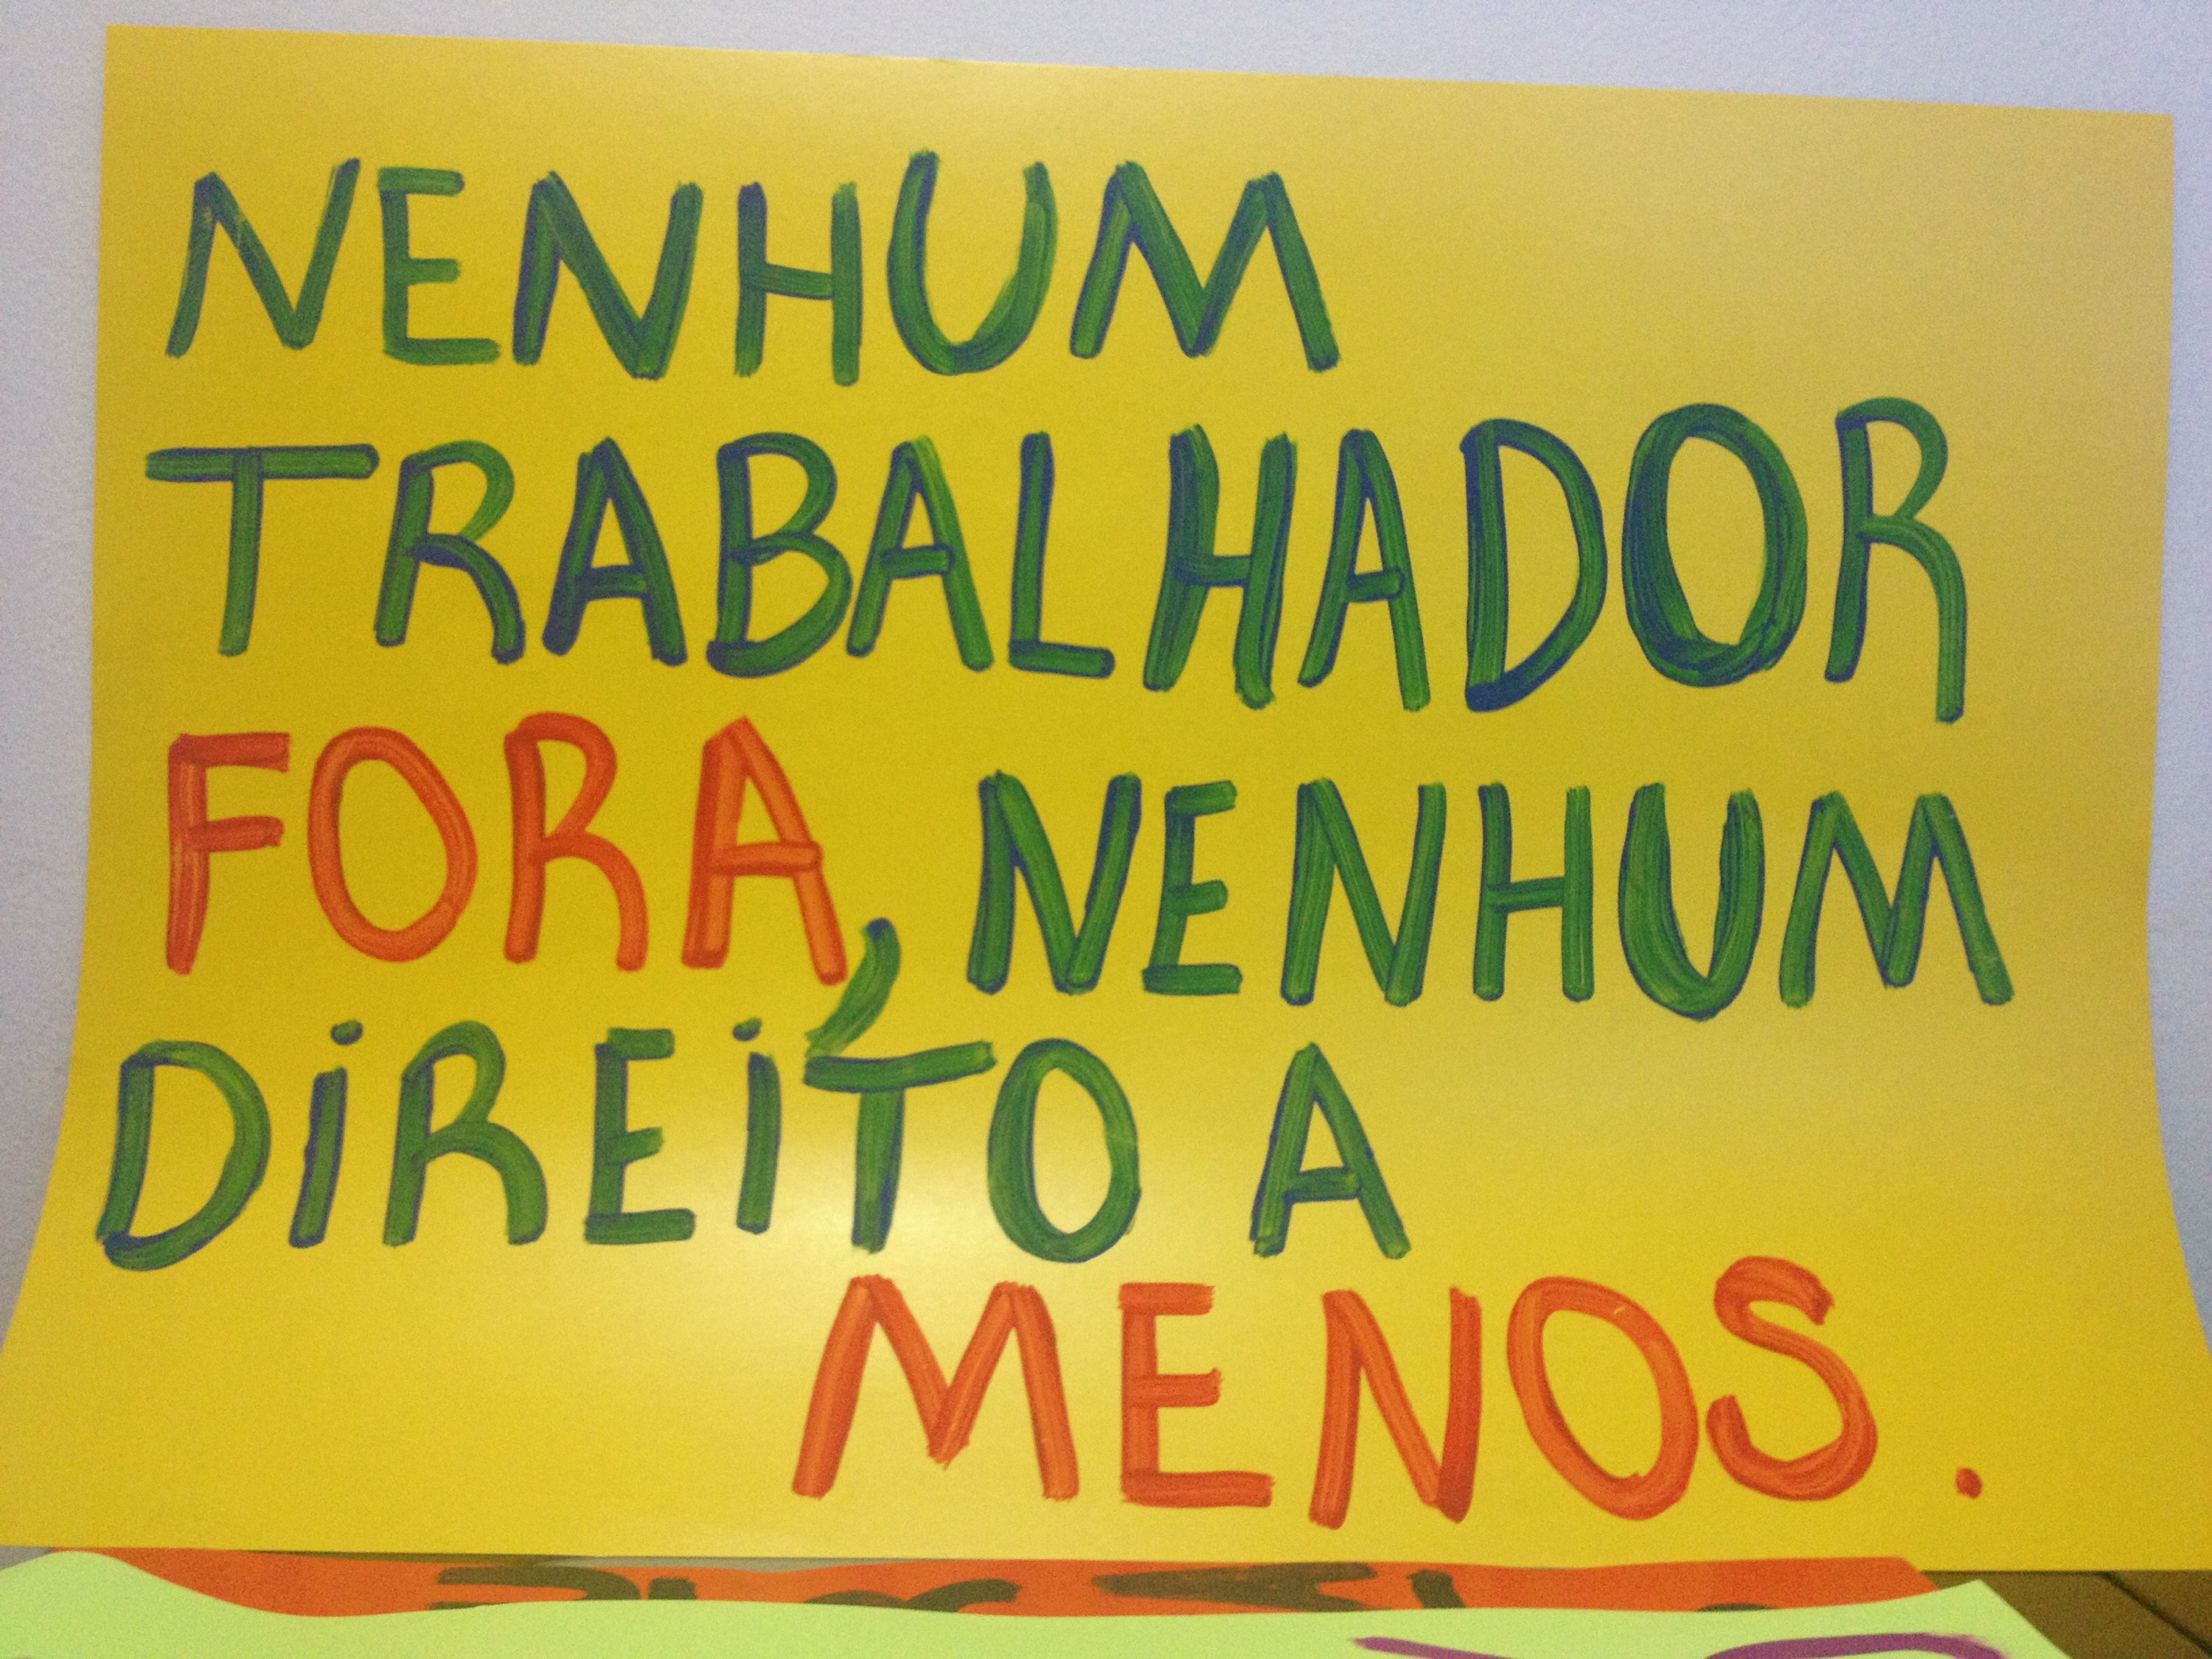 NENHUM
TRABALHADOR
FORA, NENHUM
DiREiTO A
MENOS.